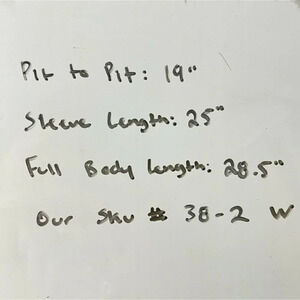 Pit to Pit: 19"
Sleeve Length: 25"
Full Body Length: 28.5"
Our Sku # 38-2 W